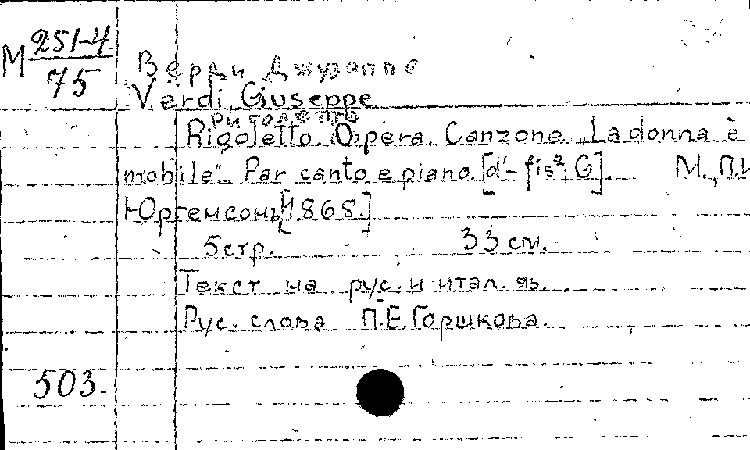 М 251-4
75
Верди Джузеппе
Verdi Giuseppe
Риголетто
Rigoletto. Opera. Canzone „La donna è
mobile“. Par canto e piano [d'-fis² G]. М., П.И
Юргенсонъ [1868.]
5 стр. 33 см.
Текст на рус. и итал. яз.
Рус. слова П.Е. Горшкова.
503.